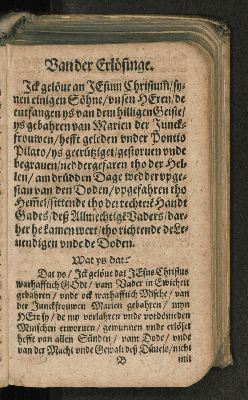 Van der Erlösinge.
Ick gelöue an JEsum Christum/sy-
nen einigen Söhne/vnsen HEren/de
entfangen ys van dem hilligen Geiste/
ys gebahren van Marien der Junck-
frouwen/hefft geleden vnder Pontio
Pilato/ys gecrütziget/gestoruen vnde
begrauen/nedderge faren tho der Hel-
len/am drüdden Dage wedder vpge-
stan van den Doden/vpgefahren tho
Hemel/sittende tho der rechtern Hand
Gades/deß Allmechtige Vaders/dar-
her he kamen wert/tho richtende de Le-
uendigen vnde de Doden.
Wat ys dat?
Dat ys/Jck gelöue dat JEsus Christus
warhafftich GOdt/vam Vader in Ewicheit
gebahren/vnde ock warhafftich Mische/van
der Junckfrouwen Marien gebahren/myn
HEre sy/de my vorlahren vnde vordömeden
Minschen erworuen/gewunnen vnde erlöset
hefft van allen Sünden/vam Dode/vnde
van der Macht vnde Gewalt deß Düuels/nicht
B mit